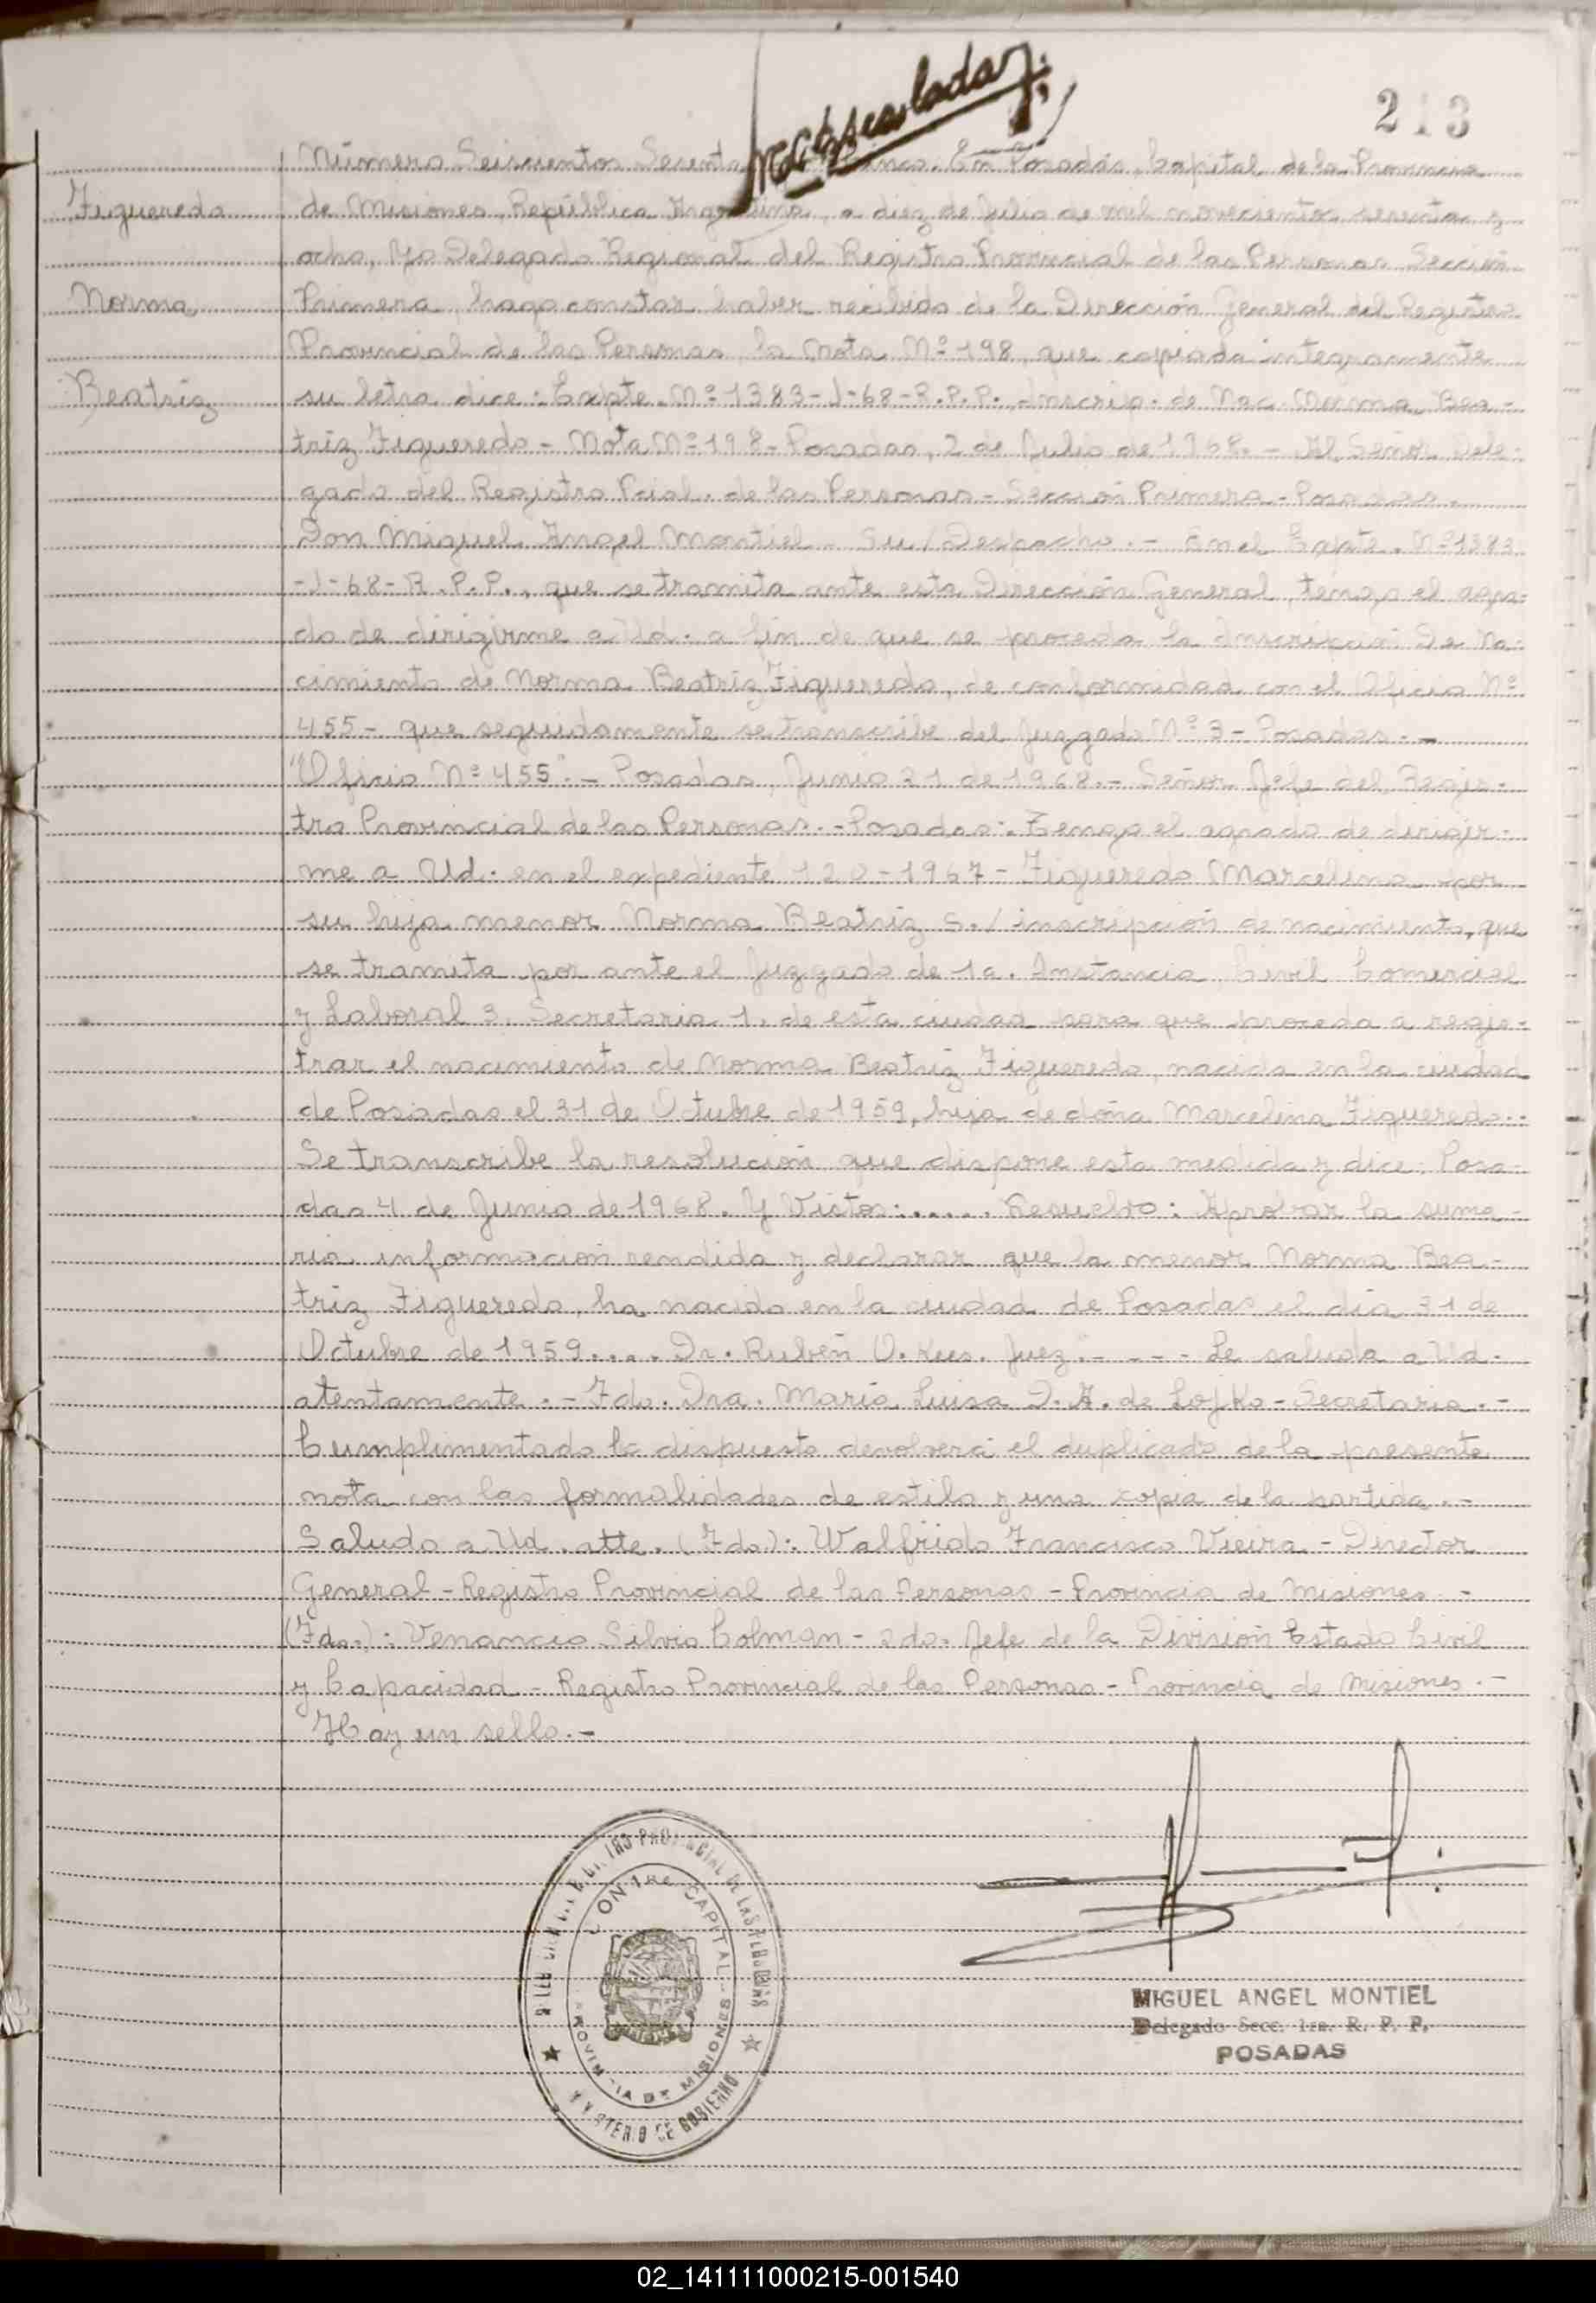 213
Número Seiscientos Sesenta cinco. En Posadas, Capital de la Provincia
Figueredo
de Misiones, República Argentina, a diez de Julio de mil novecientos sesenta y
ocho, Yo Delegado Regional del Registro Provincial de las Personas Sección
Norma
Primera, hago constar haber recibido de la Dirección General del Registro
Provincial de las Personas la Nota Nº 198, que copiada integramente
Beatriz
su letra dice: Expte. Nº 1383-J-68-R.P.P. Inscrip. de Nac. Norma Bea-
triz Figueredo - Nota Nº 198 - Posadas, 2 de Julio de 1968. - Al Señor Dele-
gado del Registro Pcial. de las Personas - Sección Primera - Posadas.
Don Miguel Angel Montiel - Su/Despacho. - En el Expte. Nº 1383
-J-68-R.P.P., que se tramita ante esta Dirección General, tengo el agra-
do de dirigirme a Ud. a fin de que se proceda la Inscripción De Na-
cimiento de Norma Beatriz Figueredo, de conformidad con el Oficio Nº
455- que seguidamente se transcribe del Juzgado Nº 3 - Posadas. -
"Oficio Nº 455". - Posadas, Junio 21 de 1968. - Señor Jefe del Regis-
tro Provincial de las Personas. - Posadas. Tengo el agrado de dirigir-
me a Ud. en el expediente 120-1967 - Figueredo Marcelina por
su hija menor Norma Beatriz S./ inscripción de nacimiento, que
se tramita por ante el Juzgado de 1a. Instancia Civil Comercial
y Laboral 3, Secretaria 1. de esta ciudad para que proceda a regis-
trar el nacimiento de Norma Beatriz Figueredo, nacida en la ciudad
de Posadas el 31 de Octubre de 1959, hija de doña Marcelina Figueredo..
Se transcribe la resolución que dispone esta medida y dice: Posa-
das 4 de Junio de 1968. Y Vistos:..... Resuelvo: Aprobar la suma-
ria información rendida y declarar que la menor Norma Bea-
triz Figueredo, ha nacido en la ciudad de Posadas el día 31 de
Octubre de 1959.... Dr. Rubén O. Kees. Juez. - - - - Le saluda a Ud.
atentamente. - Fdo. Dra. María Luisa D. A. de Lojko - Secretaria. -
Cumplimentado lo dispuesto devolverá el duplicado de la presente
nota con las formalidades de estilo y una copia de la partida. -
Saludo a Ud. atte. (Fdo.): Walfrido Francisco Vieira - Director
General - Registro Provincial de las Personas - Provincia de Misiones -
(Fdo.): Venancio Silvio Colman - 2do. Jefe de la División Estado Civil
y Capacidad - Registro Provincial de las Personas - Provincia de Misiones. -
Hay un sello. -
PROVINCIAL DE LAS PERSONAS
1RA CAPITAL
PROVINCIA DE MISIONES
MINISTERIO DE GOBIERNO
MIGUEL ANGEL MONTIEL
Delegado Secc. 1ra. R. P. P.
POSADAS
02_141111000215-001540